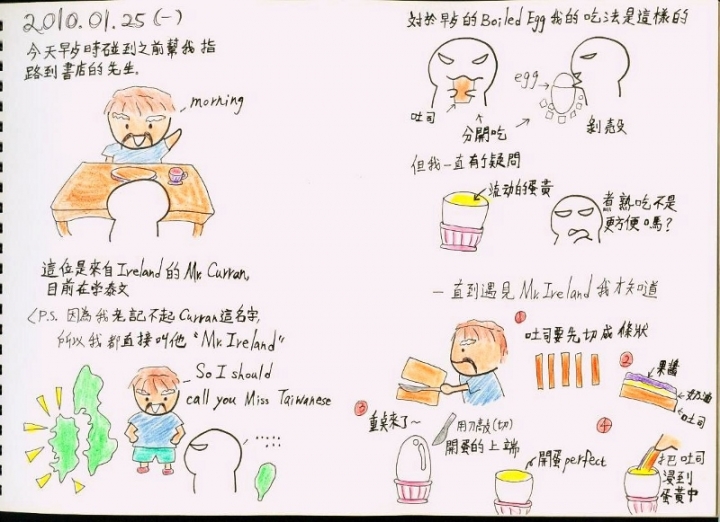 2010.01.25(一)
今天早步時碰到之前幫我指
路到書店的先生.
morning
這位是來自Ireland的Mr. Curran,
目前在学泰文
<P.S. 因為我老記不起Curran這名字,
所以我都直接叫他"Mr. Ireland"
So I should
call you Miss Taiwanese
......
對於早步的Boiled Egg我的吃法是這樣的
egg
吐司
分開吃
剝殼
但我一直有個疑問
流动的蛋黃
煮熟吃不是
更方便嗎?
一直到遇見Mr. Ireland我才知道
①
吐司要先切成條狀
②
果醬
奶油
吐司
③
重點來了~
用刀敲(切)
開蛋的上端
開蛋perfect
④
把吐司
浸到
蛋黃中